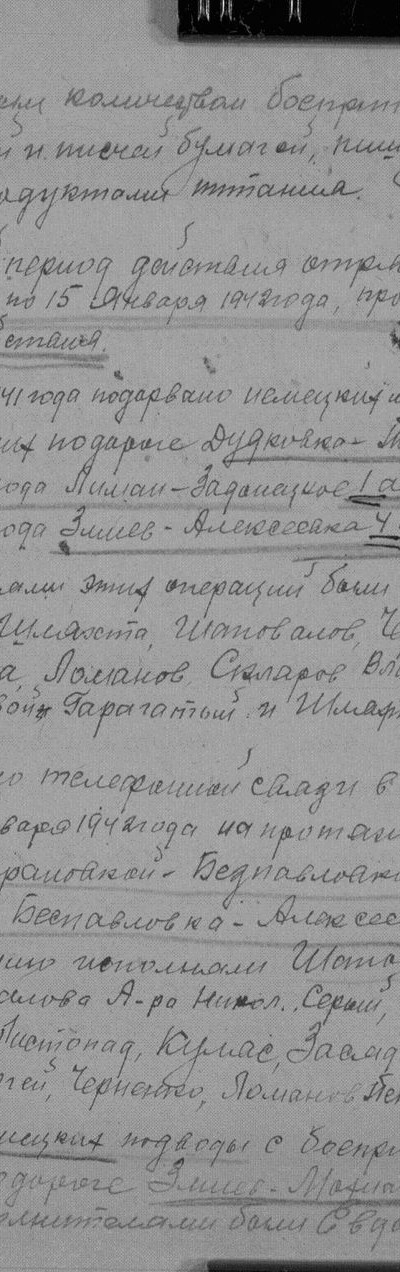 количеством боеприп
й и писчей бумагой, пиш
одуктами питания.
период действия отря
по 15 Января 1942 года, про
ствия.
41 года подорвано немецких
их по дороге Дудковка-
ода Лиман-Задонецкое 1 а
ода Змиев-Алексеевка 4
ями этих операций были
Шляхта, Шаповалов, Че
а, Ломанов, Скляров Вл
вой Гарагатый и Шлях
о телефонной связи в
варя 1942 года на протяж
рановкой-Беспавловк
Беспавловка-Алексее
нию исполняли Шапо
алова А-ра Никол., Серый,
Листопад, Кулас, Засяд
ргей, Черненко, Ломанов
мецких подводы с боепри
дороге Змиев-
олнителями были Евдо